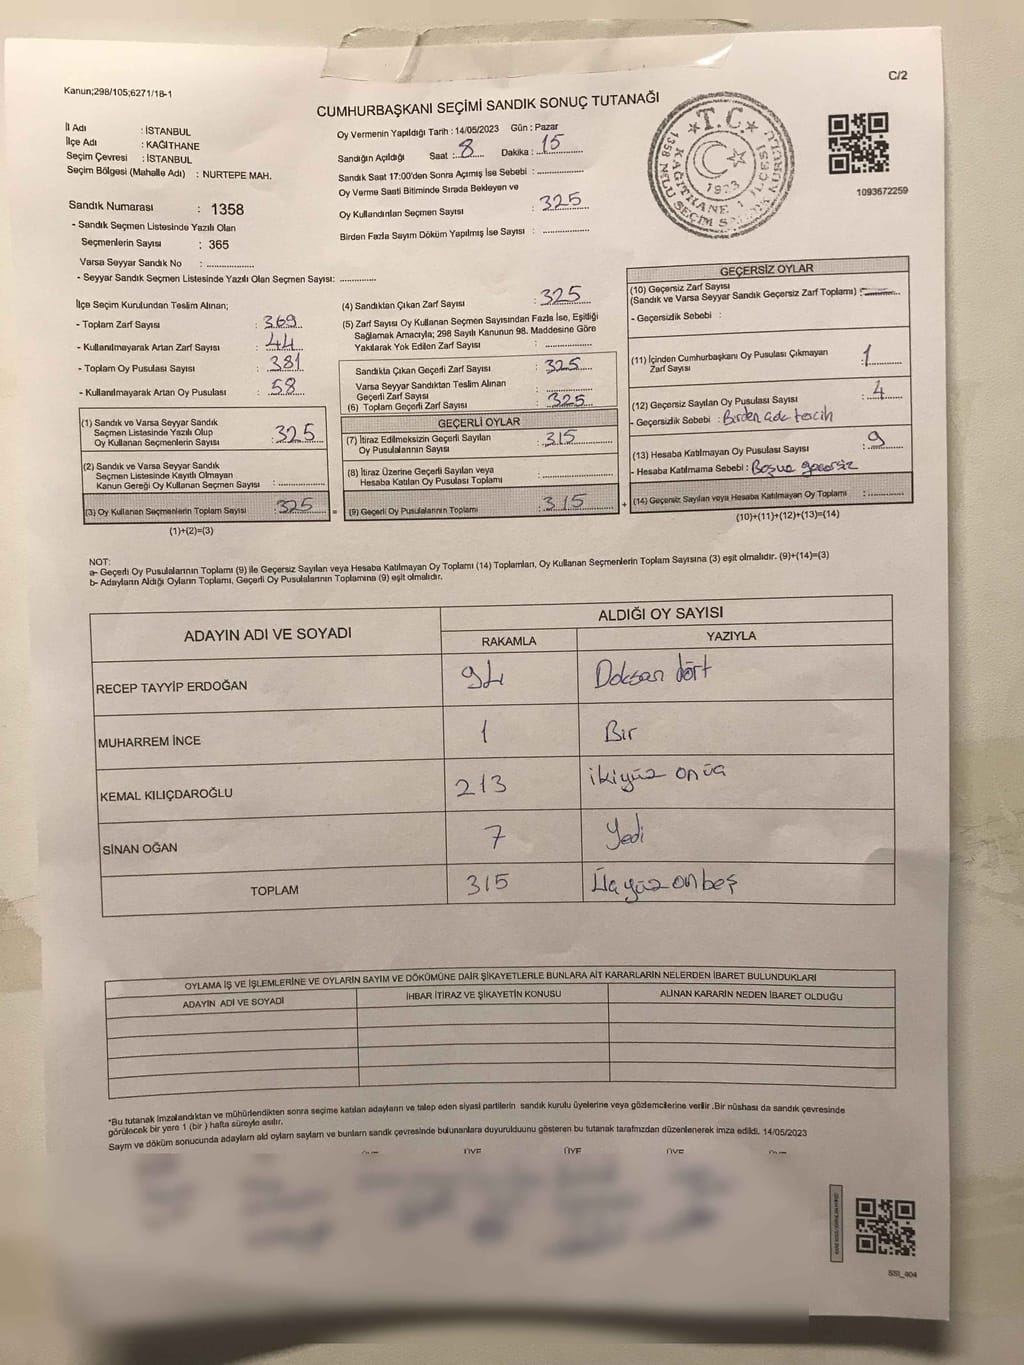 C/2
Kanun;298/105;6271/18-1
CUMHURBAŞKANI SEÇİMİ SANDIK SONUÇ TUTANAĞI
İl Adı : İSTANBUL
İlçe Adı : KAĞITHANE
Seçim Çevresi : İSTANBUL
Seçim Bölgesi (Mahalle Adı) : NURTEPE MAH.
Sandık Numarası : 1358
- Sandık Seçmen Listesinde Yazılı Olan
Seçmenlerin Sayısı : 365
Varsa Seyyar Sandık No :
- Seyyar Sandık Seçmen Listesinde Yazılı Olan Seçmen Sayısı:
Oy Vermenin Yapıldığı Tarih : 14/05/2023 Gün : Pazar
Sandığın Açıldığı Saat : 8 Dakika : 15
Sandık Saat 17:00'den Sonra Açımış İse Sebebi :
Oy Verme Saati Bitiminde Sırada Bekleyen ve
Oy Kullandırılan Seçmen Sayısı : 325
Birden Fazla Sayım Döküm Yapılmış İse Sayısı :
T.C.
KAĞITHANE 1. İLÇESİ
1358 NOLU SEÇİM SANDIK KURULU
1923
1093672259
İlçe Seçim Kurulundan Teslim Alınan;
- Toplam Zarf Sayısı : 369
- Kullanılmayarak Artan Zarf Sayısı : 44
- Toplam Oy Pusulası Sayısı : 381
- Kullanılmayarak Artan Oy Pusulası : 58
(1) Sandık ve Varsa Seyyar Sandık
Seçmen Listesinde Yazılı Olup
Oy Kullanan Seçmenlerin Sayısı : 325
(2) Sandık ve Varsa Seyyar Sandık
Seçmen Listesinde Kayıtlı Olmayan
Kanun Gereği Oy Kullanan Seçmen Sayısı :
(3) Oy Kullanan Seçmenlerin Toplam Sayısı : 325
(1)+(2)=(3)
(4) Sandıktan Çıkan Zarf Sayısı : 325
(5) Zarf Sayısı Oy Kullanan Seçmen Sayısından Fazla İse, Eşitliği
Sağlamak Amacıyla; 298 Sayılı Kanunun 98. Maddesine Göre
Yakılarak Yok Edilen Zarf Sayısı :
Sandıkta Çıkan Geçerli Zarf Sayısı : 325
Varsa Seyyar Sandıktan Teslim Alınan
Geçerli Zarf Sayısı :
(6) Toplam Geçerli Zarf Sayısı : 325
GEÇERLİ OYLAR
(7) İtiraz Edilmeksizin Geçerli Sayılan
Oy Pusulasının Sayısı : 315
(8) İtiraz Üzerine Geçerli Sayılan veya
Hesaba Katılan Oy Pusulası Toplamı :
= (9) Geçerli Oy Pusulalarının Toplamı : 315 +
GEÇERSİZ OYLAR
(10) Geçersiz Zarf Sayısı
(Sandık ve Varsa Seyyar Sandık Geçersiz Zarf Toplamı) :
- Geçersizlik Sebebi :
(11) İçinden Cumhurbaşkanı Oy Pusulası Çıkmayan
Zarf Sayısı : 1
(12) Geçersiz Sayılan Oy Pusulası Sayısı : 4
- Geçersizlik Sebebi : Birden çok tercih
(13) Hesaba Katılmayan Oy Pusulası Sayısı : 9
- Hesaba Katılmama Sebebi : Boşuna geçersiz
(14) Geçersiz Sayılan veya Hesaba Katılmayan Oy Toplamı :
(10)+(11)+(12)+(13)=(14)
NOT:
a- Geçerli Oy Pusulalarının Toplamı (9) ile Geçersiz Sayılan veya Hesaba Katılmayan Oy Toplamı (14) Toplamları, Oy Kullanan Seçmenlerin Toplam Sayısına (3) eşit olmalıdır. (9)+(14)=(3)
b- Adayların Aldığı Oyların Toplamı, Geçerli Oy Pusulalarının Toplamına (9) eşit olmalıdır.
ADAYIN ADI VE SOYADI ALDIĞI OY SAYISI
RAKAMLA YAZIYLA
RECEP TAYYİP ERDOĞAN 94 Doksan dört
MUHARREM İNCE 1 Bir
KEMAL KILIÇDAROĞLU 213 ikiyüz onüç
SİNAN OĞAN 7 Yedi
TOPLAM 315 Üçyüz onbeş
OYLAMA İŞ VE İŞLEMLERİNE VE OYLARIN SAYIM VE DÖKÜMÜNE DAİR ŞİKAYETLERLE BUNLARA AİT KARARLARIN NELERDEN İBARET BULUNDUKLARI
ADAYIN ADI VE SOYADI İHBAR İTİRAZ VE ŞİKAYETİN KONUSU ALINAN KARARIN NEDEN İBARET OLDUĞU
*Bu tutanak imzalandıktan ve mühürlendikten sonra seçime katılan adayların ve talep eden siyasi partilerin sandık kurulu üyelerine veya gözlemcilerine verilir .Bir nüshası da sandık çevresinde
görülecek bir yere 1 (bir ) hafta süreyle asılır.
Sayım ve döküm sonucunda adayların aldı oyların sayıları ve bunların sandık çevresinde bulunanlara duyurulduunu gösteren bu tutanak tarafımızdan düzenlenerek imza edildi. 14/05/2023
ÜYE ÜYE ÜYE
SSI_404